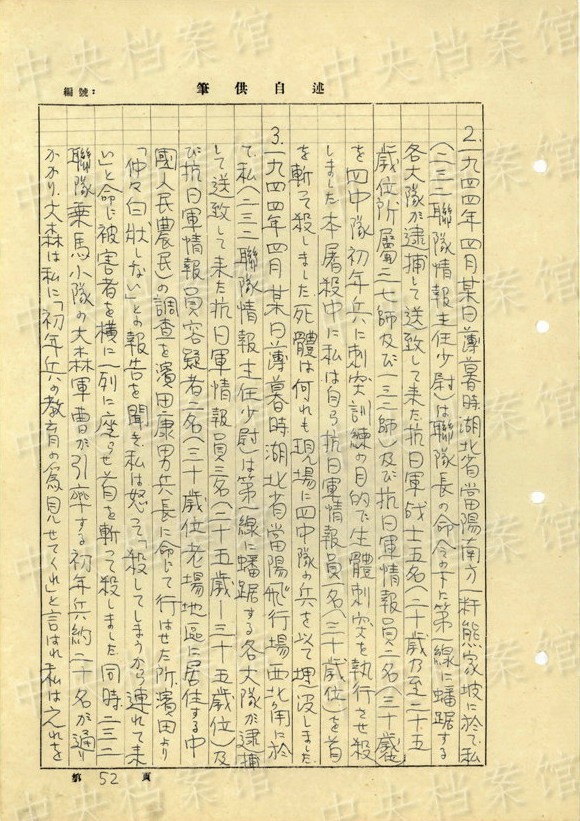 編號：
筆供自述
2. 一九四四年四月某日薄暮時湖北省當陽南方一粁熊家坡に於て私
（二三二聯隊情報主任少尉）は聯隊長の命令の下に第一線に蟠踞する
各大隊が逮捕して送致して来た抗日軍战士五名（二十歲乃至二十五
歲位所屬二七師及び一三二師）及び抗日軍情報員二名（三十歲位）
を四中隊初年兵に刺突訓練の目的で生體刺突を執行させ殺
しました本屠殺中に私は自ら抗日軍情報員一名（三十歲位）を首
を斬って殺しました死體は何れも現場に四中隊の兵を以て埋没しました
3. 一九四四年四月某日薄暮時湖北省當陽飛行場西北角に於
て私（二三二聯隊情報主任少尉）は第一線に蟠踞する各大隊が逮捕
して送致して来た抗日軍情報員三名（二十五歲－三十五歲位）及
び抗日軍情報員容疑者二名（三十歲位老場地區に居住する中
國人民農民）の調查を濱田康男兵長に命じて行はせた所、濱田より
「仲々白狀しない」との報告を聞き私は怒って「殺してしまうから連れて来
い」と命じ被害者を橫に一列に座らせ首を斬って殺しました同時二三二
聯隊乗馬小隊の大森軍曹が引率する初年兵約二十名が通り
かかり、大森は私に「初年兵の教育の為見せてくれ」と言はれ私は之れを
第 52 頁
中央档案馆